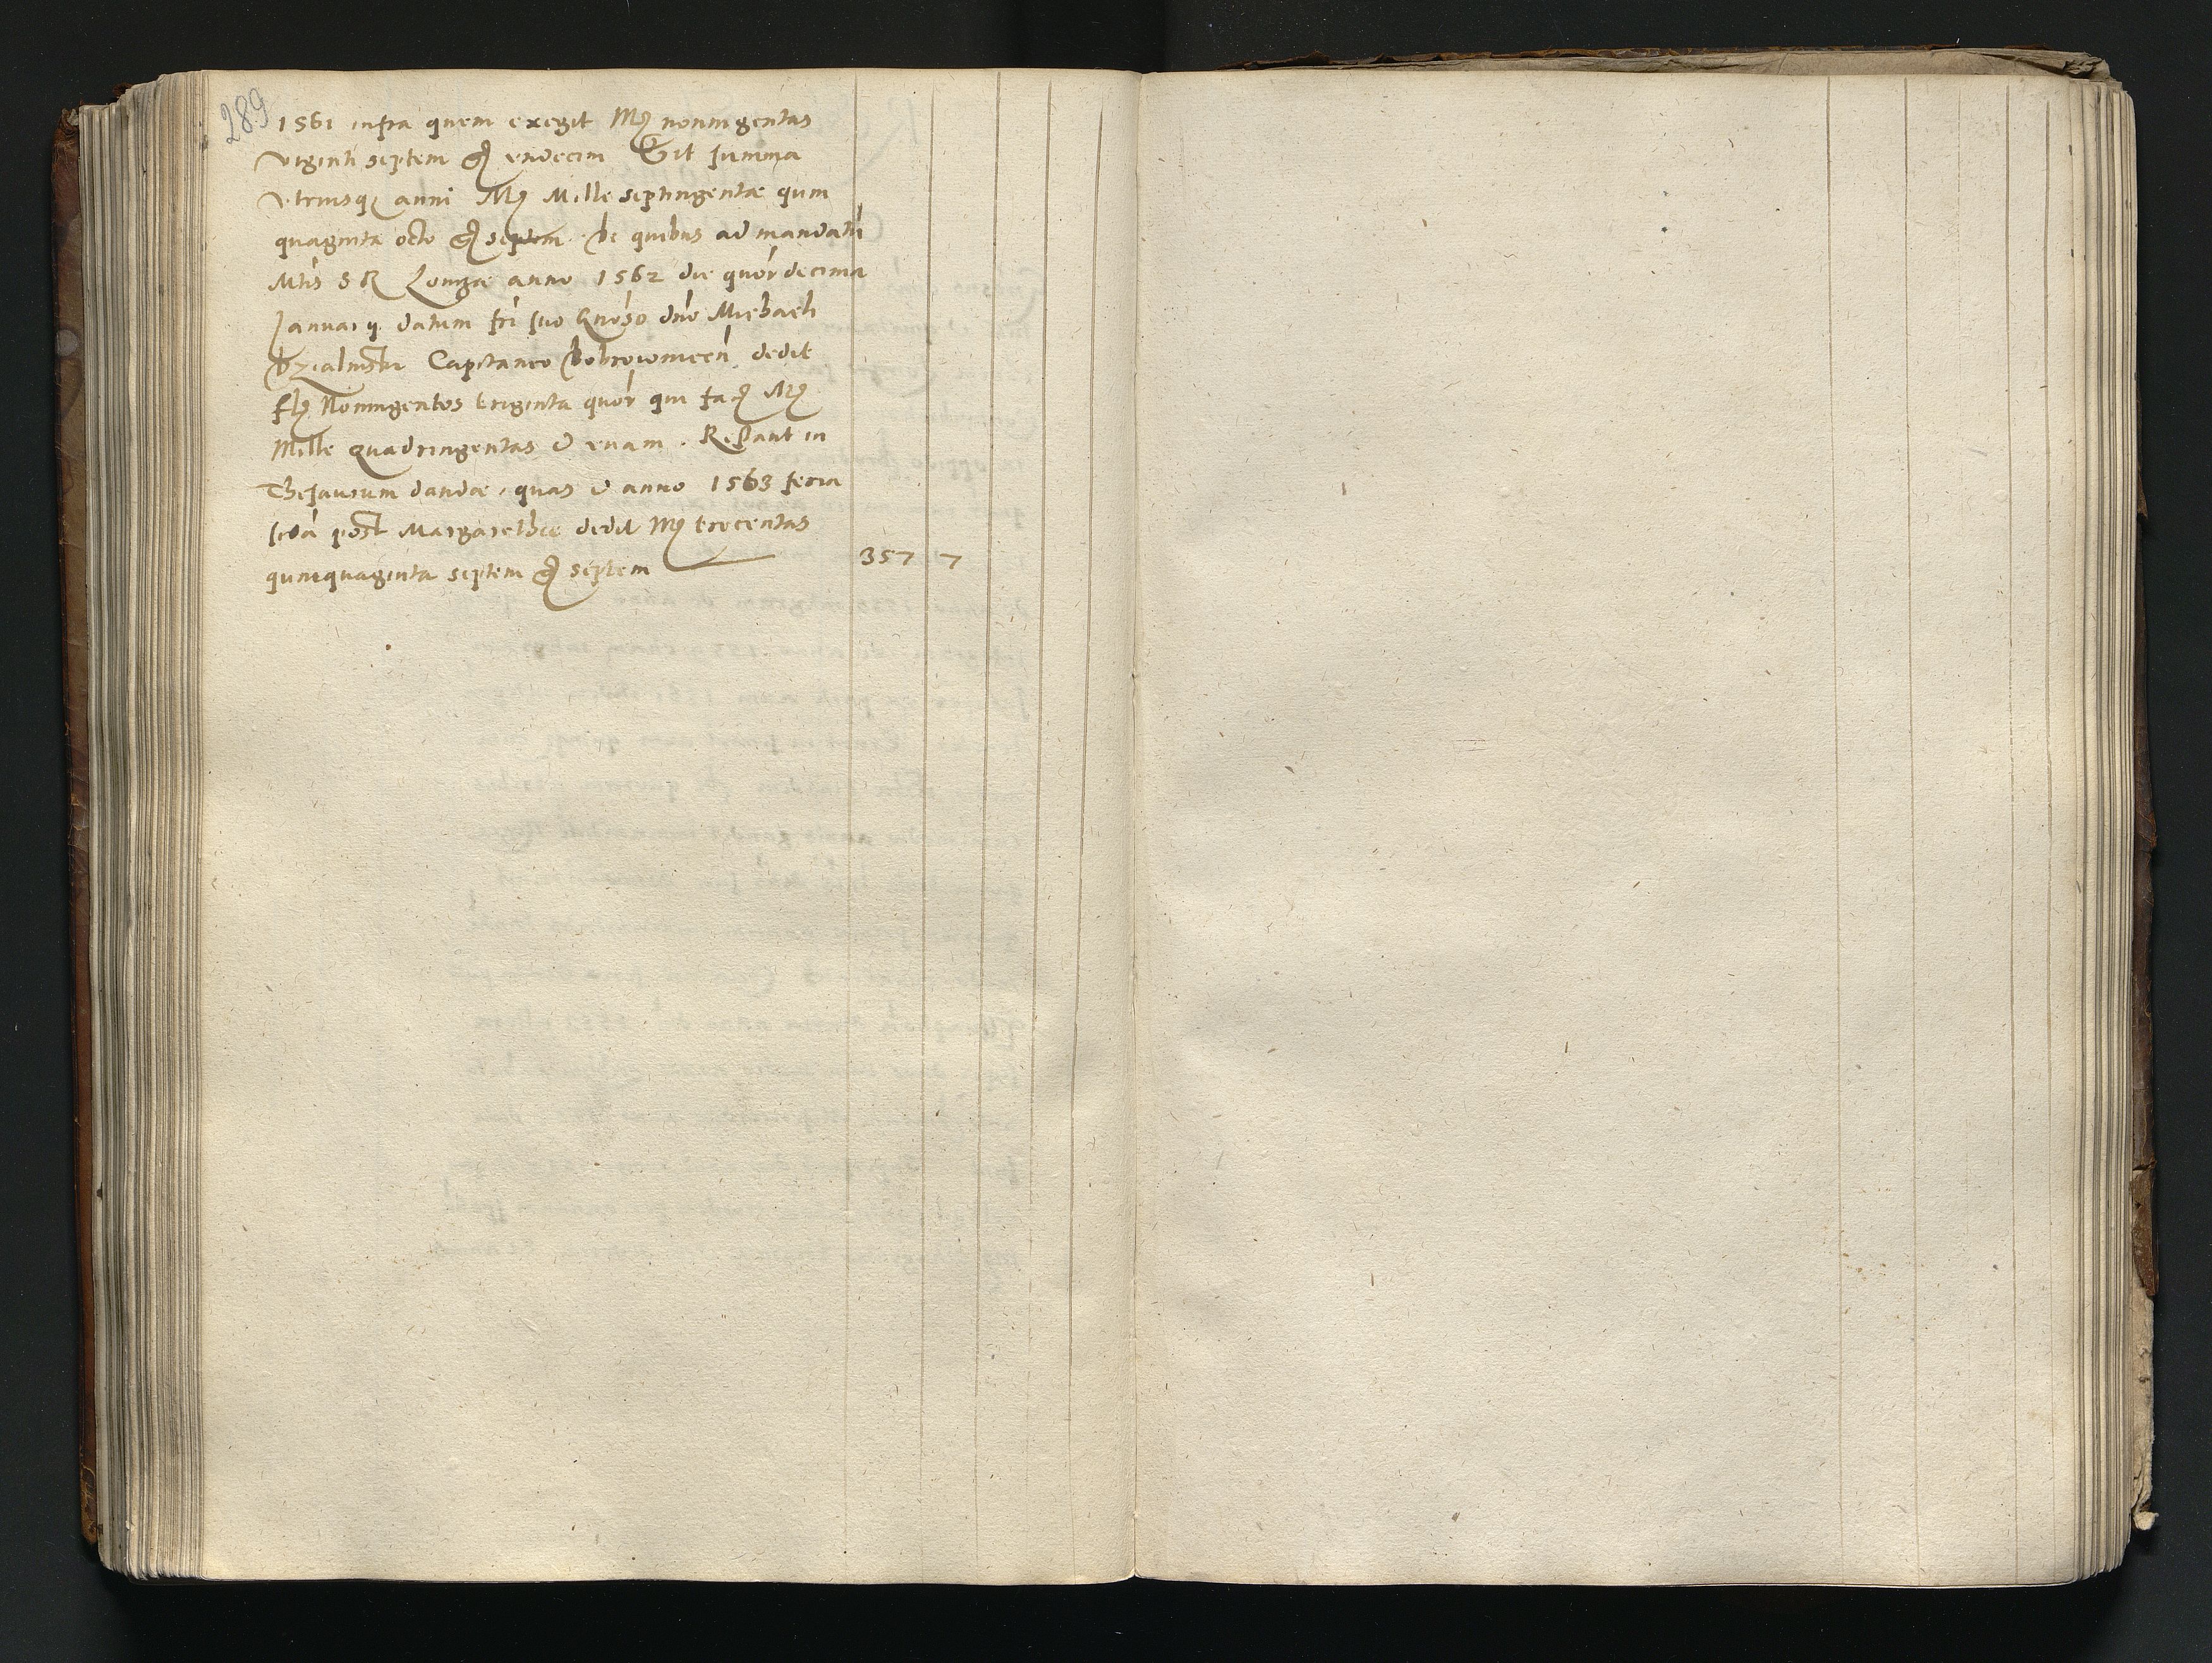 289
1561 infra quem exegit M̃ noningentas
viginti septem g̃ endecim Erit summa
vtriusq̃ anni M̃ Mille septingentæ quin
quaginta octo g̃ septem. De quibus ad mandatũ
Mtis S R Lomzæ anno 1562 die quõrdecima
January datum fri suo Gnõso dño Michaeli
Dzialinski Capitaneo Bobrowniceñ. dedit
fl̃ Noningentos triginta quõr qui fac̃ M̃
Mille quadringentas & vnam. Restant in
Thesaurum dandæ, quas & anno 1563 feria
scďa post Margarethæ dedit M̃ trecentas
quinquaginta septem g̃ septem 357 7